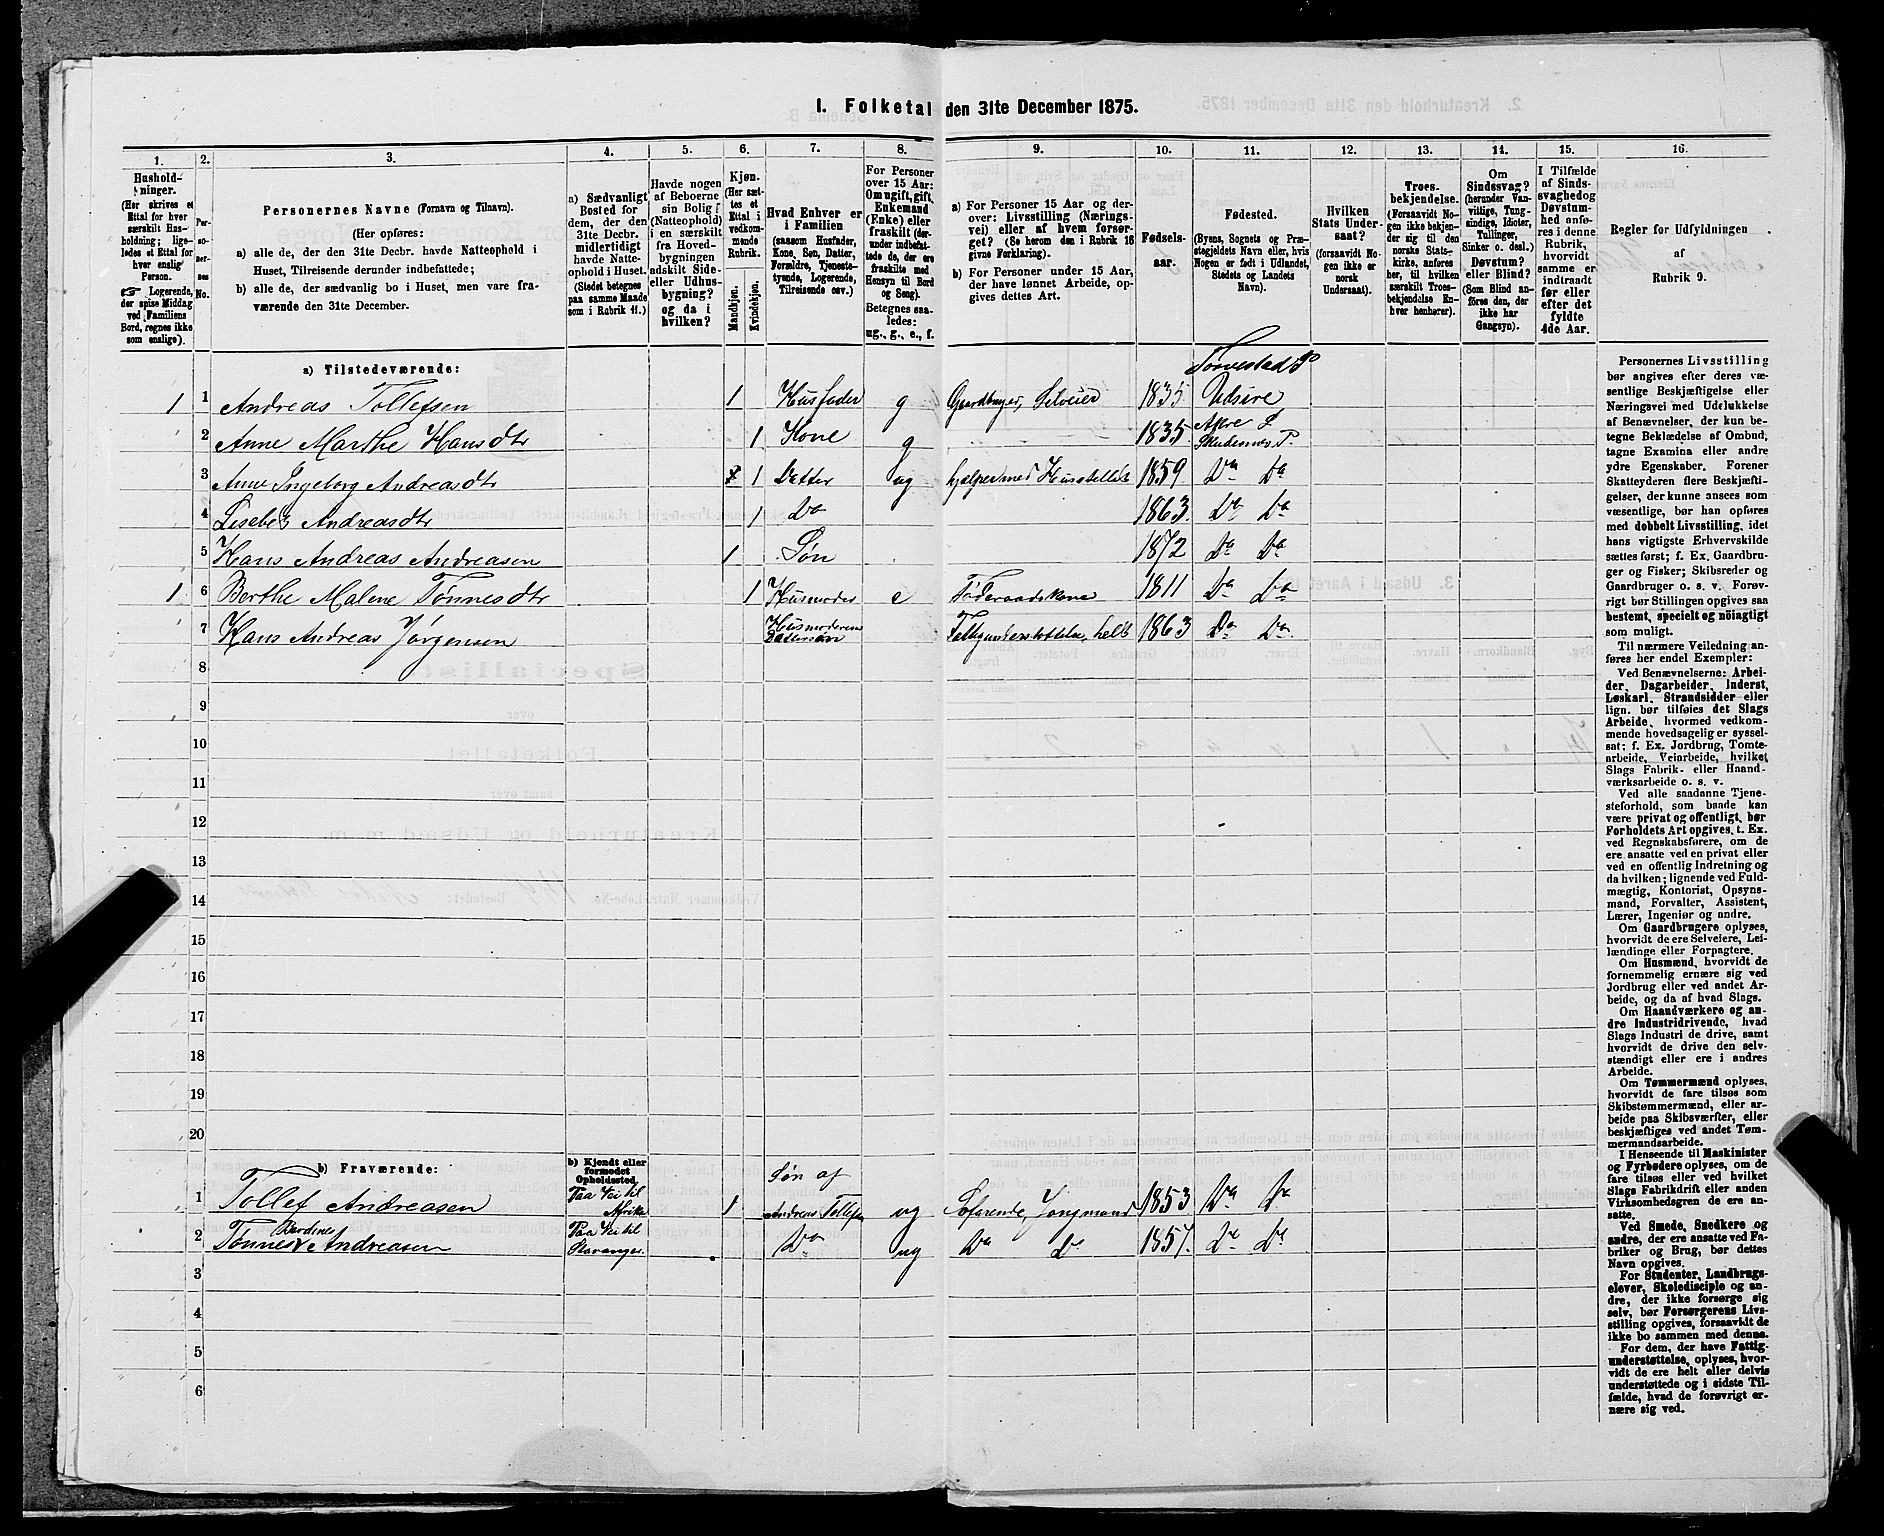 1. Folketal den 31te December 1875.
1. 2. 3. 4. 5. 6. 7. 8. 9. 10. 11. 12. 13. 14. 15. 16.
Hushold-
ninger.
(Her skrives et
Ettal for hver
særskilt Hus-
holdning; lige-
ledes et Ettal for
hver enslig
Person.
☞ Logerende,
der spise Middag
ved Familiens
Bord, regnes ikke
som enslige).
Per-
so-
ner-
nes
No.
Personernes Navne (Fornavn og Tilnavn).
(Her opføres:
a) alle de, der den 31te Decbr. havde Natteophold i
Huset, Tilreisende derunder indbefattede;
b) alle de, der sædvanlig bo i Huset, men vare fra-
værende den 31te December.
a) Sædvanligt
Bosted for
dem, der den
31te Decbr.
midlertidigt
havde Natte-
ophold i Huset.
(Stedet betegnes
paa samme Maade
som i Rubrik 11.)
Havde nogen
af Beboerne
sin Bolig
(Natteophold)
i en særskilt
fra Hoved-
bygningen
adskilt Side-
eller Udhus-
bygning?
og da i
hvilken?
Kjøn.
(Her sæt-
tes et
Ettal i
vedkom-
mende
Rubrik.
Mandkjøn.
Kvindekjøn.
Hvad Enhver er
i Familien
(saasom Husfader,
Kone, Søn, Datter,
Forældre, Tjeneste-
tyende, Logerende,
Tilreisende osv.)
For Personer
over 15 Aar:
Om ugift, gift,
Enkemand
(Enke) eller
fraskilt (der-
under indbefat-
tede de, der ere
fraskilte med
Hensyn til Bord
og Seng).
Betegnes saa-
ledes:
ug., g., e., f.
a) For Personer 15 Aar og der-
over: Livsstilling (Nærings-
vei) eller af hvem forsør-
get? (Se herom den i Rubrik 16
givne Forklaring).
b) For Personer under 15 Aar,
der have lønnet Arbeide, op-
gives dettes Art.
Fødsels-
aar.
Fødested.
(Byens, Sognets og Præ-
stegjeldets Navn eller, hvis
Nogen er født i Udlandet,
Stedets og Landets
Navn).
Hvilken
Stats Under-
saat?
(foraavidt No-
gen ikke er
norsk
Undersaat).
Troes-
bekjendelse.
(Forsaavidt No-
gen ikke bekjen-
der sig til den
norske Stats-
kirke, anføres
her, til hvilken
særskilt Troes-
bekjendelse En-
hver henhører).
Om
Sindssvag?
(herunder Van-
vittige, Tung-
sindige, Idioter,
Tullinger,
Sinker o. desl.)
Døvstum?
eller Blind?
(Som Blind an-
føres den, der
ikke har
Gangsyn).
I Tilfælde
af Sinds-
svaghedog
Døvstum-
hed anfø-
res i denne
Rubrik,
hvorvidt
samme er
indtraadt
før eller
efter det
fyldte
4de Aar.
Regler for Udfyldningen
af
Rubrik 9.
a) Tilstedeværende:
Torvestad P
1 1 Andreas Tollefsen 1 Husfader g Gaardbruger, Selveier 1835 Udsire
2 Anne Marthe Hansdtr 1 Kone g 1835 Akre S. Skudesnæs P.
3 Anne Ingeborg Andreasdtr 1 Datter ug hjælper med Husstellet 1859. Do Do
4 Lisebet Andreasdtr 1 Do 1863. Do Do
5 Hans Andreas Andreasen 1 Søn 1872 Do Do
1 6 Berthe Malene Tønnesdtr 1 Husmoder e Føderaadskone 1811 Do Do
7 Hans Andreas Jørgensen Husmoderens Dattersøn Fattigunderstøttelse, helt 1863 Do Do.
8
9
10
11
12
13
14
15
16
17
18
19
20
b) Fraværende:
b) Kjendt eller
formodet
Opholdssted.
1 Tollef Andreasen Paa Vei til Afrika 1 Søn af Andreas Tollefsen ug Søfarende, Jongmand 1853 Do Do
2 Tønnes Bardines Andreasen Paa Vei til Stavanger. Do ug Do Do 1857. Do Do
3
4
5
6
Personernes Livsstilling
bør angives efter deres væ-
sentlige Beskjæftigelse eller
Næringsvei med Udelukkelse
af Benævnelser, der kun be-
tegne Beklædelse af Ombud,
tagne Examina eller andre
ydre Egenskaber. Forener
Skatteyderen flere Beskjæfti-
gelser, der kunne ansees som
væsentlige, bør han opføres
med dobbelt Livsstilling, idet
hans vigtigste Erhvervskilde
sættes først; f. Ex. Gaardbru-
ger og Fisker; Skibsreder og
Gaardbruger o. s. v. Forøv-
rigt bør Stillingen opgives saa
bestemt, specielt og nöiagtigt
som muligt.
Til nærmere Veiledning an-
føres her endel Exempler:
Ved Benævnelserne: Arbei-
der, Dagarbeider, Inderst,
Løskarl, Strandsidder eller
lign. bør tilføies det Slags
Arbeide, hvormed vedkom-
mende hovedsagelig er syssel-
sat; f. Ex. Jordbrug, Tomte-
arbeide, Veiarbeide, hvilket
Slags Fabrik- eller Haand-
værksarbeide o. s. v.
Ved alle saadanne Tjene-
steforhold, som baade kan
være privat og offentligt, bør
Forholdets Art opgives, t. Ex.
ved Regnskabsførere, om de
ere ansatte ved en privat eller
ved en offentlig Indretning og
da hvilken; lignende ved Fuld-
mægtig, Kontorist, Opsyns-
mand, Forvalter, Assistent,
Lærer, Ingeniør og andre.
Om Gaardbrugere oplyses,
hvorvidt de ere Selveiere, Lei-
lændinge eller Forpagtere.
Om Husmænd, hvorvidt de
fornemmelig ernære sig ved
Jordbrug eller ved andet Ar-
beide, og da af hvad Slags.
Om Haandværkere og an-
dre industridrivende, hvad
Slags Industri de drive, samt
hvorvidt de drive den selv-
stændigt eller ere i andres
Arbeide.
Om Tømmermænd oplyses,
hvorvidt de fare tilsøs som
Skibstømmermænd, eller ar-
beide paa Skibsværfter, eller
beskjæftiges ved andet Tøm-
mermandsarbeide.
I Henseende til Maskinister
og Fyrbødere oplyses, om de
fare tilsøs eller ved hvilket
Slags Fabrikdrift eller anden
Virksomhedsgren de ere an-
satte.
Ved Smede, Snedkere og
andre, der ere ansatte ved Fa-
briker og Brug, bør dettes
Navn opgives.
For Studenter, Landbrugs-
elever, Skoledisciple og an-
dre, der ikke forsørge sig
selv, bør Forsørgerens Livs-
stilling opgives, forsaavidt de
ikke bo sammen med denne.
For dem, der have Fattig-
understøttelse, oplyses, hvor-
vidt de ere helt eller delvis
understøttede og i sidste Til-
fælde, hvad de forøvrigt er-
nære sig ved.